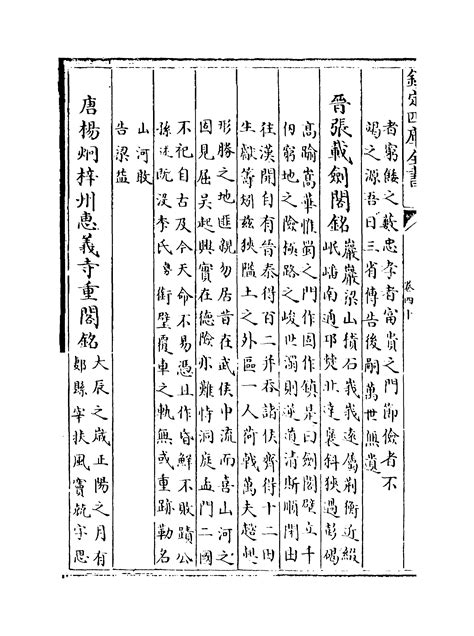 欽定四庫全書
卷四十
者窮餒之藪忠孝者富貴之門節儉者不
竭之源吾日三省傅告後嗣萬世無遺
晉張載劍閣銘
巖巖梁山積石峩峩遠屬荆衡近綴
岷嶓南通邛僰北達褒斜狹過彭碣
高踰嵩華惟蜀之門作固作鎮是曰劍閣壁立千
仞窮地之險極路之峻世濁則逆道清斯順閉由
往漢開自有晉秦得百二并吞諸侯齊得十二田
生獻籌矧兹狹隘土之外區一人荷戟萬夫趦趄
形勝之地匪親勿居昔在武侯中流而喜山河之
固見屈吳起興實在德險亦難恃洞庭孟門二國
不祀自古及今天命不易憑且作昏鮮不敗蹟公
孫述既沒李氏銜璧覆車之軌無或重跡勒名
山河敢
告梁益
唐楊炯梓州惠義寺重閣銘
大辰之歲正陽之月有
郪縣宰扶風竇兢字思